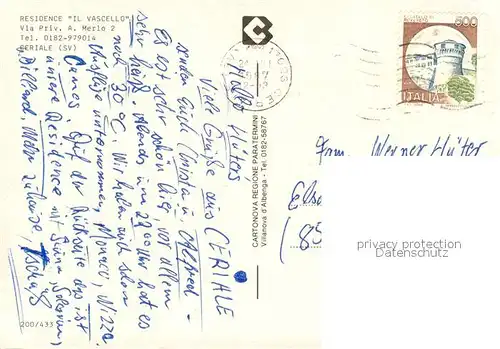 RESIDENCE "IL VASCELLO"
Via Priv. A. Merlo 2
Tel. 0182-979014
CERIALE (SV)
Hallo Hüters,
Viele Grüße aus CERIALE
senden Euch Christa u. Alfred -
Es ist sehr schön hier, vor allem
sehr heiß. Abends um 22 Uhr hat es
noch 30°C. Wir haben auch schon
Ausflüge unternommen, Monaco, Nizza,
Cannes. Auf der Rückseite das ist
unsere Residence mit Sauna, Solarium,
Billard, Mehr zuhause, Tschüß
200/433
CARTONOVA REGIONE PARATERMINI
Villanova d'Albenga - Tel. 0182-58761
500
ITALIA
Fam. Werner Hüter
(85
privacy protection
watermark